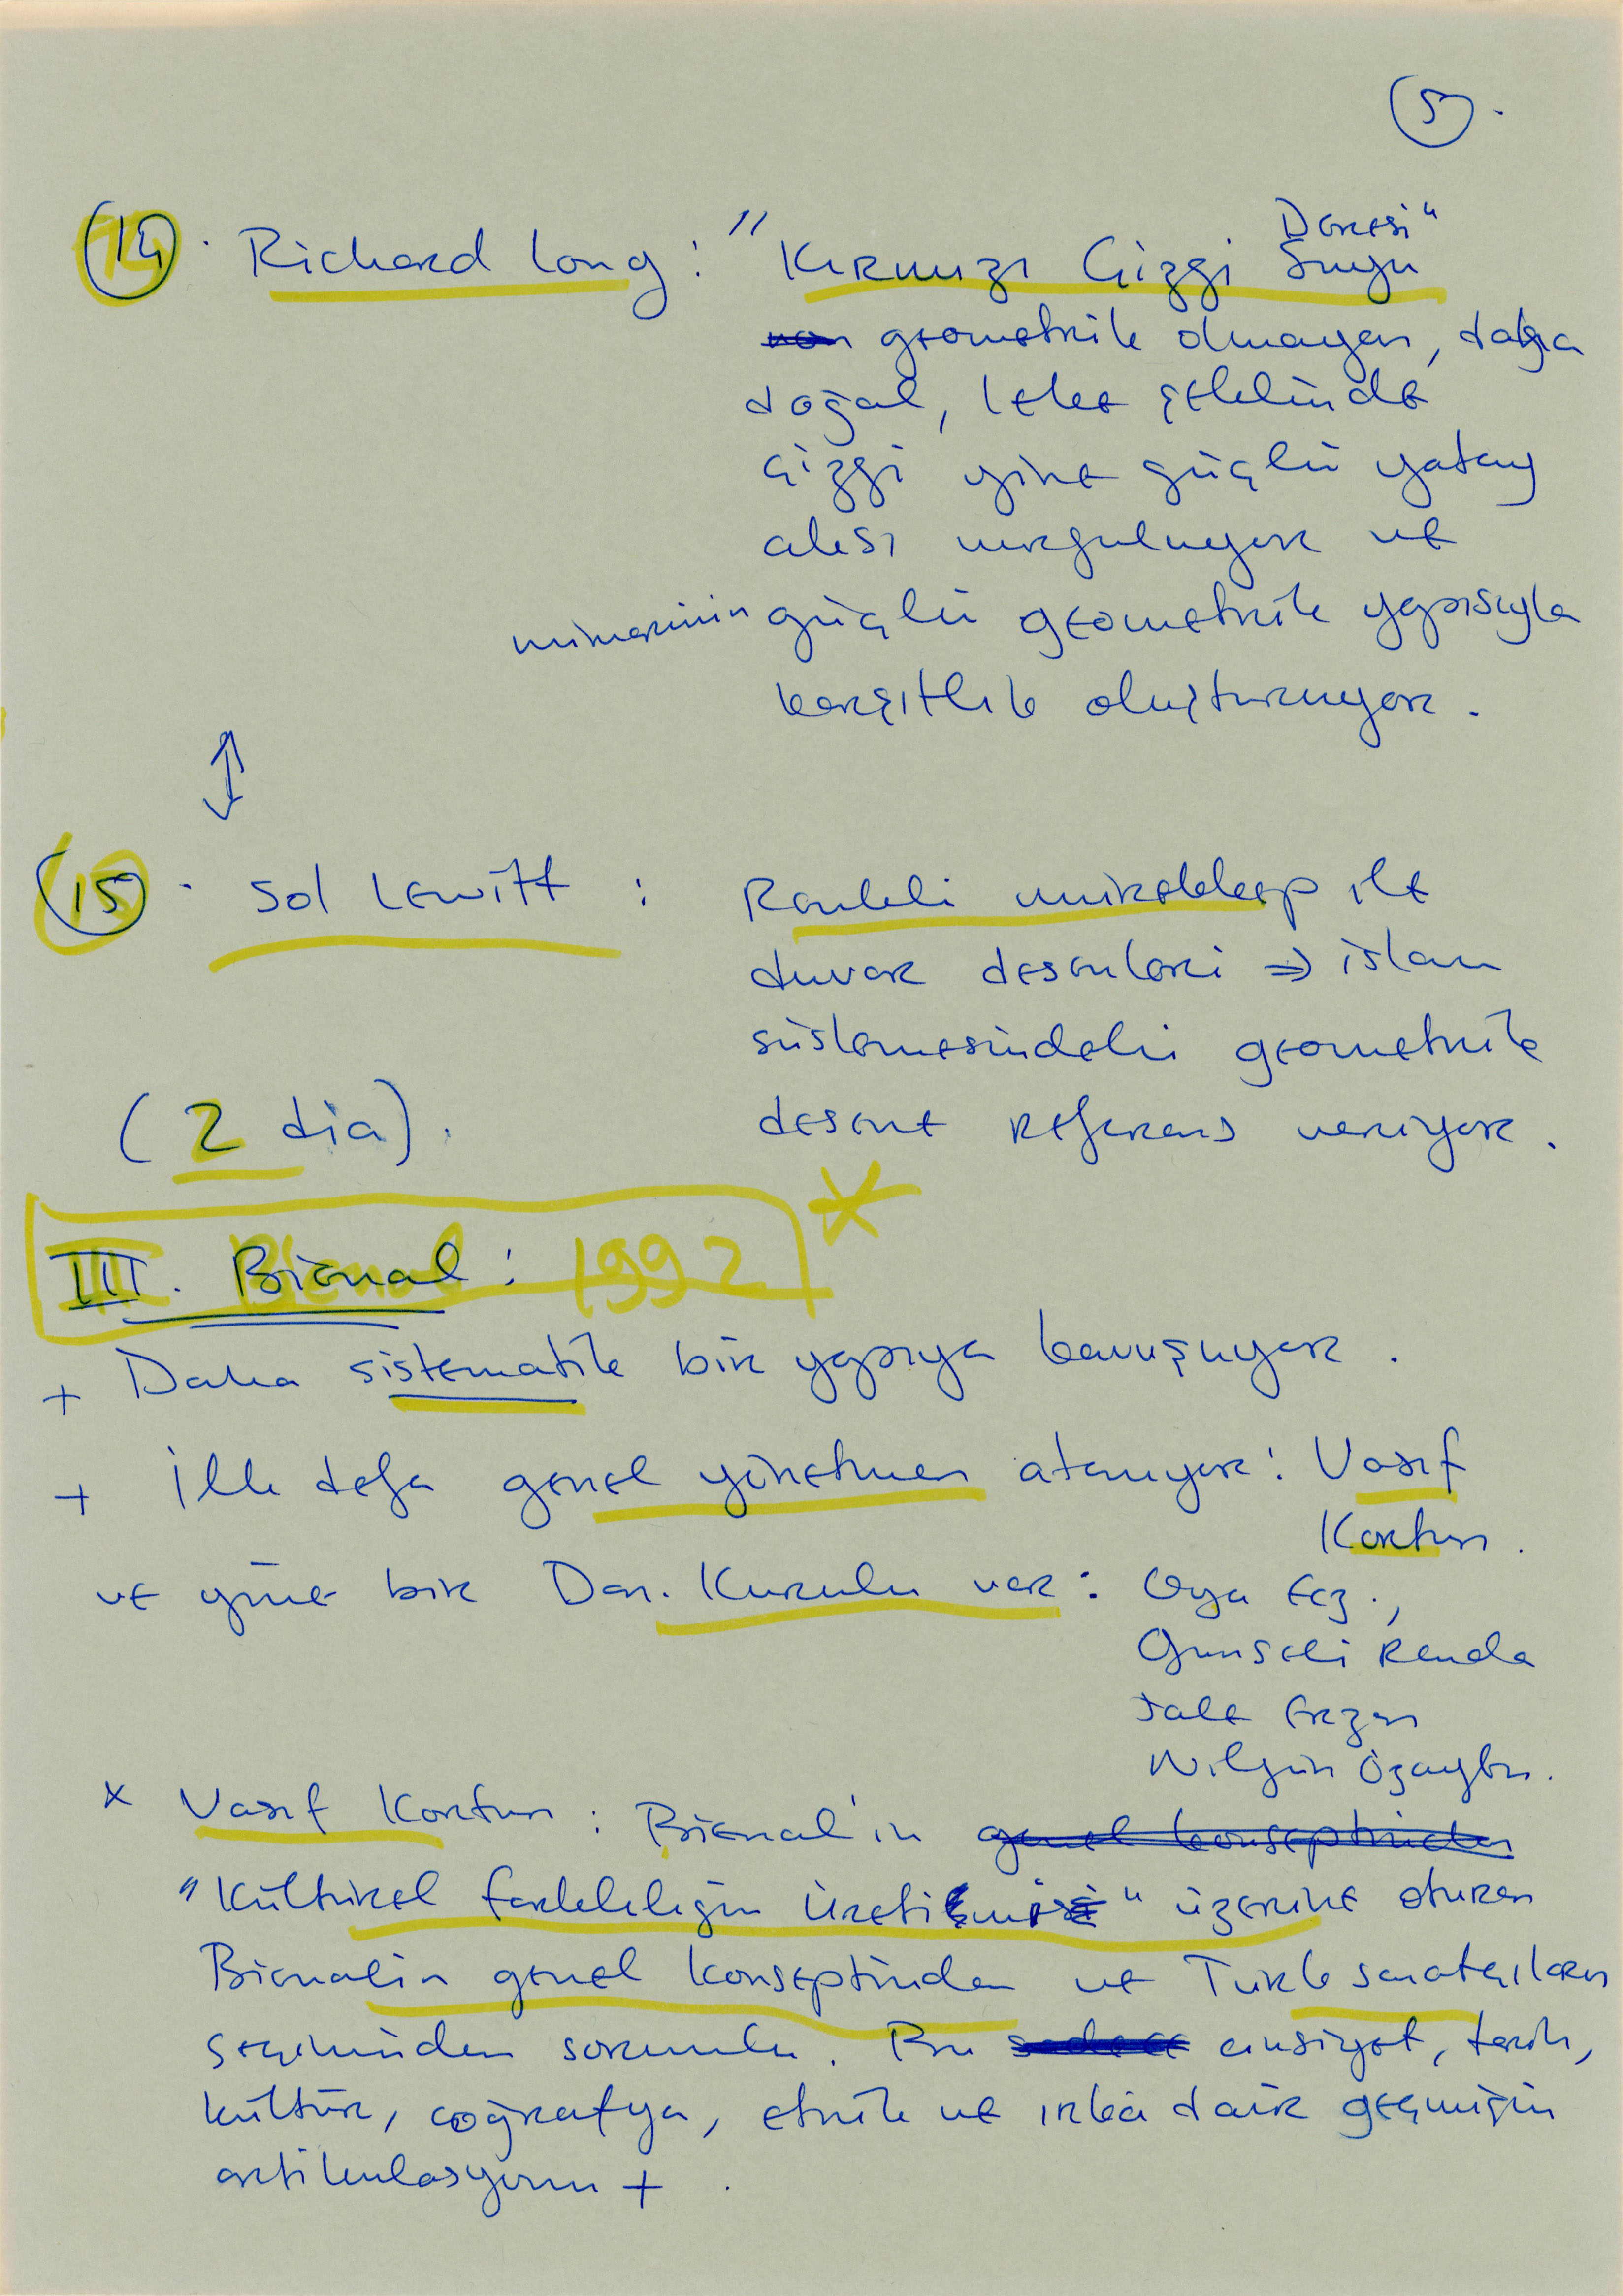 5.
14. Richard Long: "Kırmızı Çizgi Suyu Dairesi"
geometrik olmayan, daha
doğal, leke şeklinde
çizgi yine güçlü yatay
aksı vurguluyor ve
mimarinin güçlü geometrik yapısıyla
karşıtlık oluşturuyor.
↕
15. Sol Lewitt : Renkli mürekkep ile
duvar desenleri ⇒ islam
süslemesindeki geometrik
(2 dia). desene referans veriyor.
III. Bienal: 1992 *
+ Daha sistematik bir yapıya kavuşuyor.
+ İlk defa genel yönetmen atanıyor: Vasıf
Kortun.
ve yine bir Dan. Kurulu var: Oya Ecz.,
Günseli Renda
Jale Erzen
Nilgün Özayten.
x Vasıf Kortun: Bienal'in genel konseptinden
"Kültürel farklılığın üretilmişi" üzerine oturan
Bienalin genel konseptinden ve Türk sanatçıların
seçiminden sorumlu. Bu sadece cinsiyet, tarih,
kültür, coğrafya, etnik ve ırka dair geçmişin
artikulasyonu +.